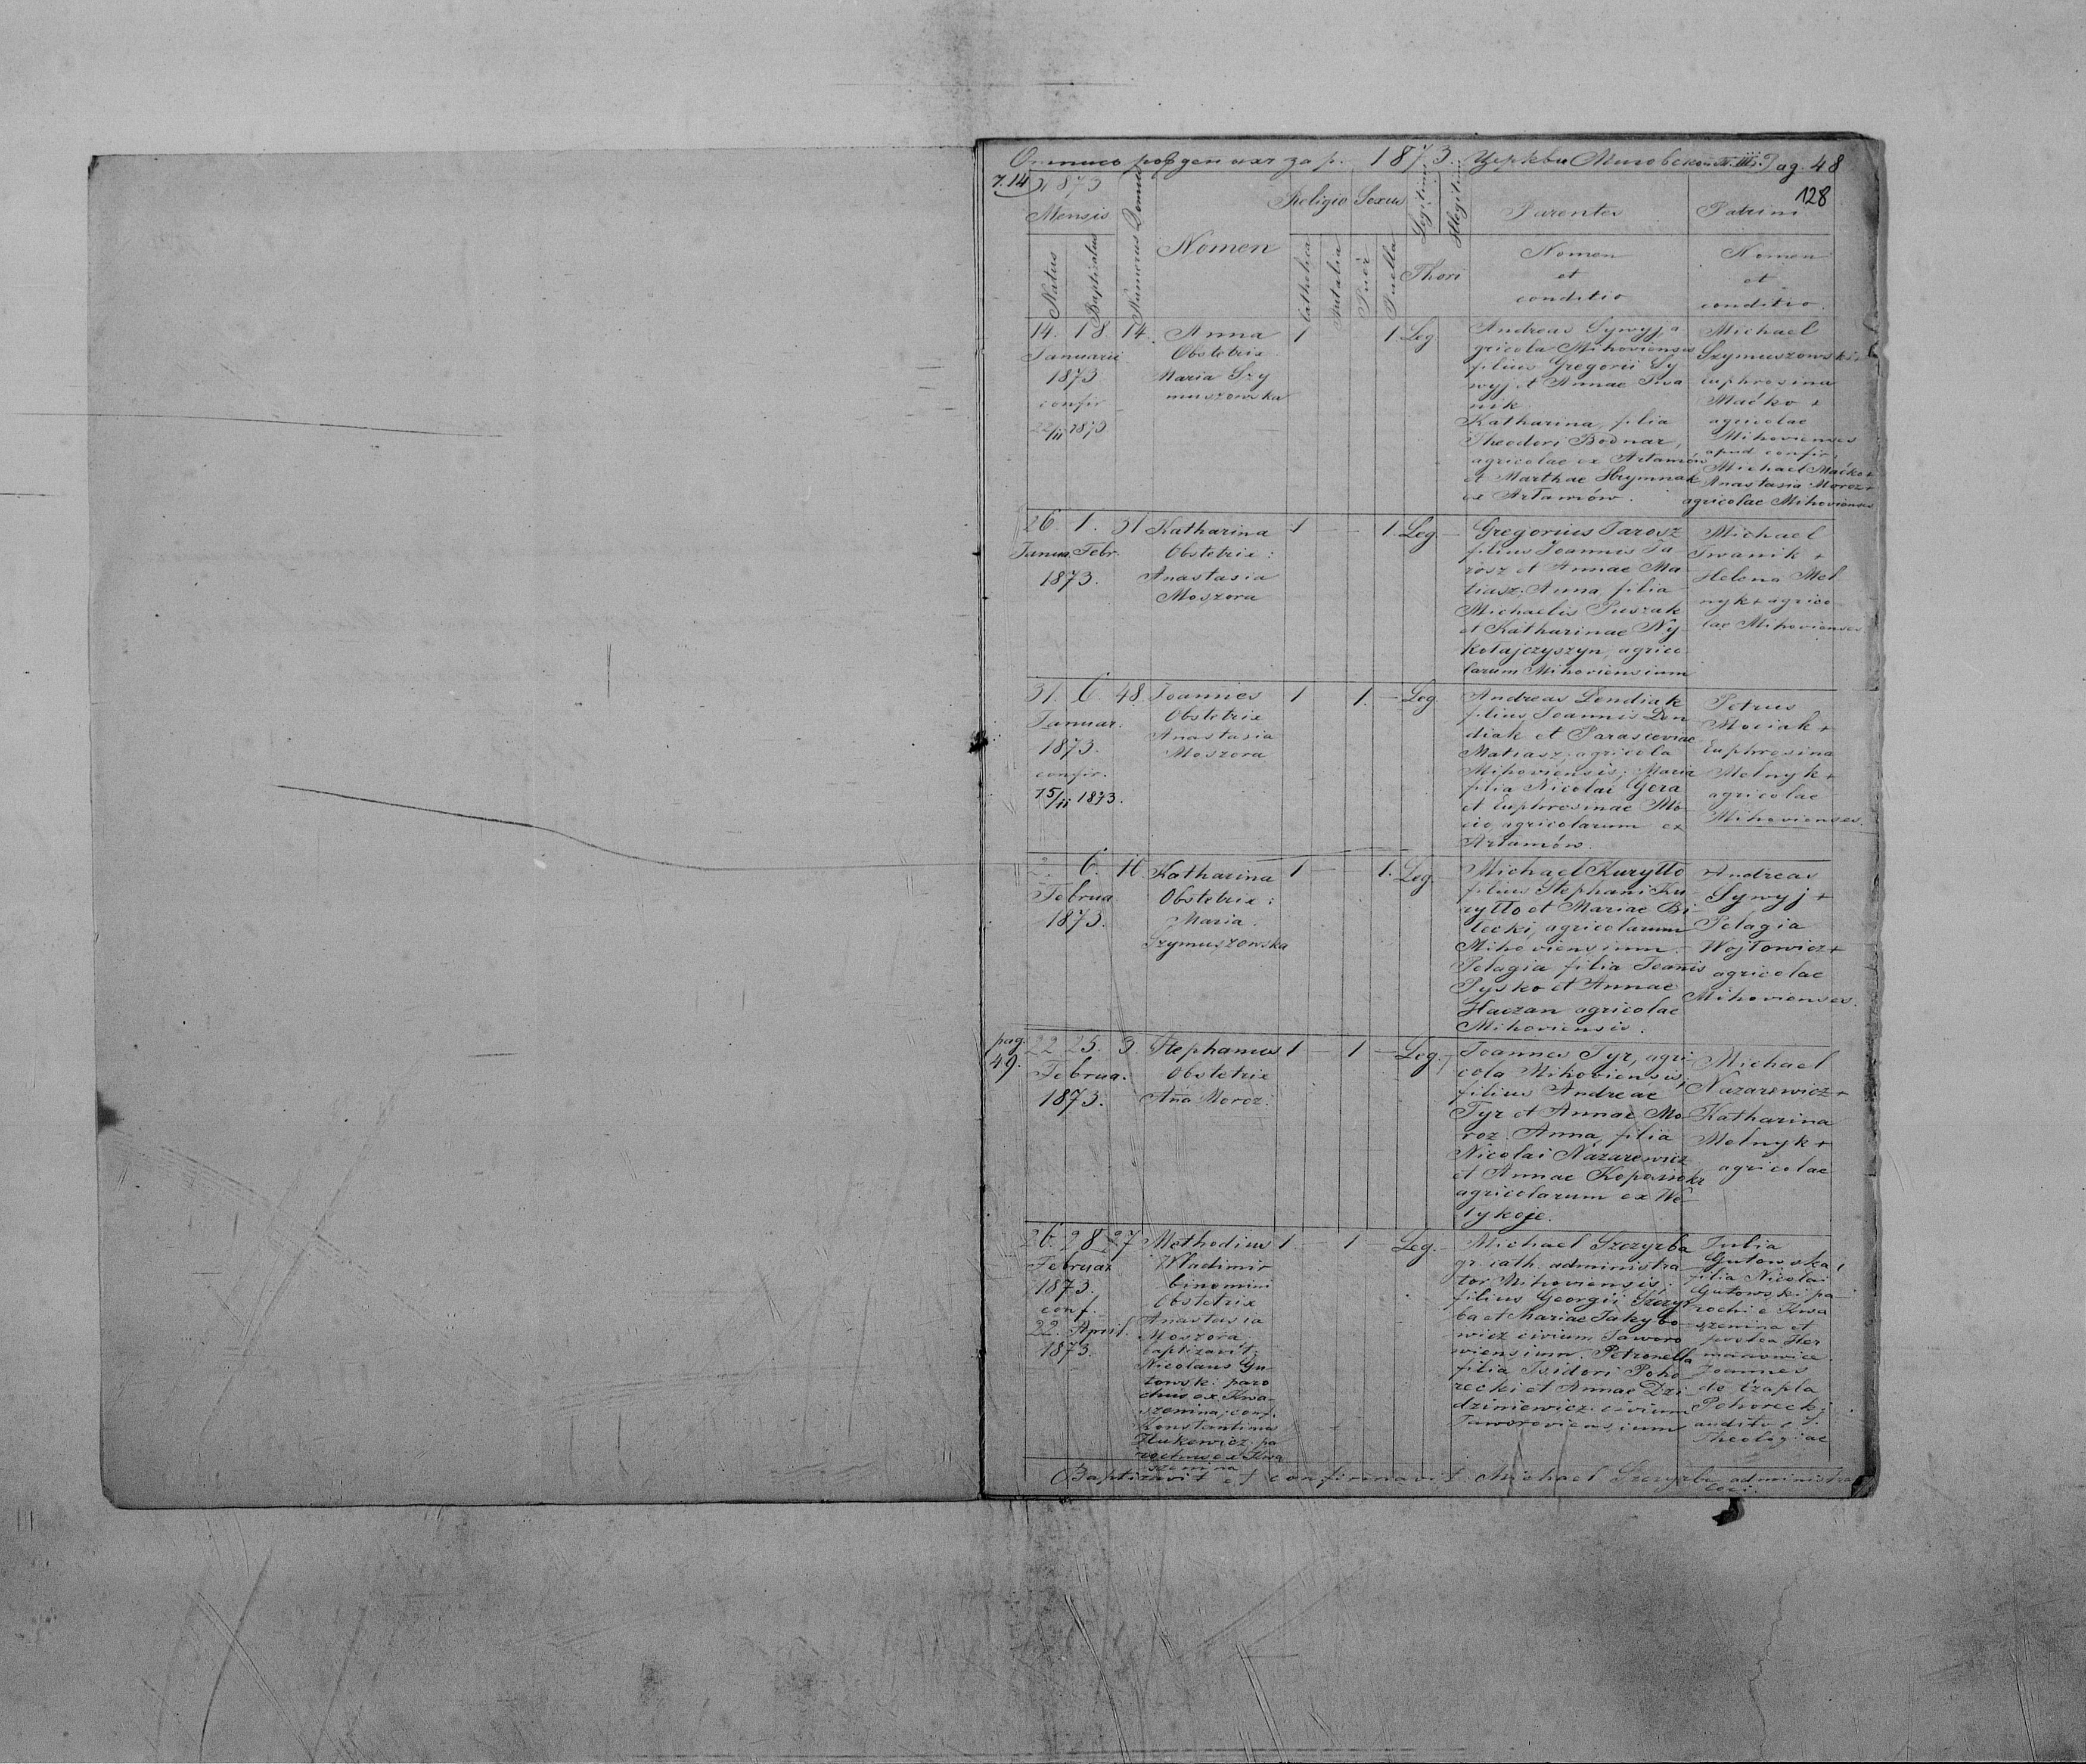 1873. Pag. 48
7.14
128
1873
Mensis
Natus
Baptisatus
Numerus Domus
Nomen
Religio
Catholica
Aut alia
Sexus
Puer
Puella
Legitimi
Illegitimi
Thori
Parentes
Nomen
et
conditio
Patrini
Nomen
et
conditio.
14. 18. 14.
Januarii
1873
confir
22/II 1873
Anna
Obstetrix
Maria Szy
muszowska
1 1 Leg
Andreas Sywyj, a
gricola Mihoviensis
filius Gregorii Sy
wyj et Annae Iwa
nik.
Katharina, filia
Theodori Bodnar,
agricolae ex Artamów
et Marthae Hrymnak
ex Artamów.
Michael
Szymuszowski +
Euphrosina
Maćko +
agricolae
Mihovienses
apud confir.
Michael Maćko +
Anastasia Moroz +
agricolae Mihovienses
26. 1. 31
Januar. Febr.
1873.
Katharina
Obstetrix:
Anastasia
Moszora
1 — — 1. Leg. —
Gregorius Jarosz
filius Joannis Ja
rosz et Annae Ma
tiasz; Anna filia
Michaelis Puszak
et Katharinae Ny
kołajczyszyn, agrico
larum Mihoviensium
Michael
Iwanik +
Helena Mel
nyk + agrico
lae Mihovienses
31. 6. 48.
Januar.
1873.
confir.
15/II 1873.
Joannes
Obstetrix
Anastasia
Moszora
1 — 1. — Leg.
Andreas Dendiak
filius Joannis Den
diak et Parasceviae
Matiasz, agricola
Mihoviensis; Maria
filia Nicolai Gera
et Euphrosinae Mo
cio agricolarum ex
Artamów.
Petrus
Mociak +
Euphrosina
Melnyk +
agricolae
Mihovienses.
2. 6. 16.
Februa
1873.
Katharina
Obstetrix:
Maria
Szymuszowska
1 — 1. Leg. —
Michael Kuryłło
filius Stephani Ku
ryłło et Mariae Bi
lecki, agricolarum
Mihoviensium.
Pelagia filia Joanis
Pysko et Annae
Haczan agricolae
Mihoviensis.
Andreas
Sywyj +
Pelagia
Wojtowicz +
agricolae
Mihovienses.
pag.
49.
22. 25. 3.
Februa.
1873.
Stephanus
Obstetrix
Aña Moroz.
1 — 1 — Leg.
Joannes Tyr, agri
cola Mihoviensis,
filius Andreae
Tyr et Annae Mo
roz. Anna, filia
Nicolai Nazarewicz
et Annae
agricolarum ex We
lykoje.
Michael
Nazarewicz +
Katharina
Melnyk +
agricolae
26. 28. 27
Februar
1873.
conf.
22. April.
1873.
Methodius
Wladimir
binomini
Obstetrix
Anastasia
Moszora.
baptizavit:
Nicolaus Gu
towski paro
chus ex Kwa
szenina, conf.
Konstantinus
Hukewicz pa
rochus ex Kwa
szenina
1. — 1 — Leg. —
Michael Szczyrba
gr. cath. administra
tor Mihoviensis.
filius Georgii Szczyr
ba et Mariae Jakybo
wicz civium Jaworo
wiensium. Petronella
filia Isidori Poho
recki et Annae Dzi
dziniewicz civium
Jaworoviensium
Julia
Gutowska,
filia Nicolai
Gutowski pa
rochi e Kwa
szenina et
postea Her
manowice.
Joannes
de Czapla
Pohorecki
auditor s.
Theologiae
Baptizavit et confirmavit Michael Szczyrba administra
loci.